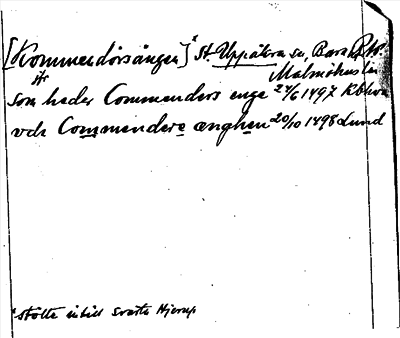 [Kommendörsängen]ˣ St. Uppåkra sn, Bara
Malmöhus län
jfr
som heder Commenders enge 24/6 1497
och Commendere ænghen 20/10 1498 Lund
ˣ stötte intill Svarta Hjerup